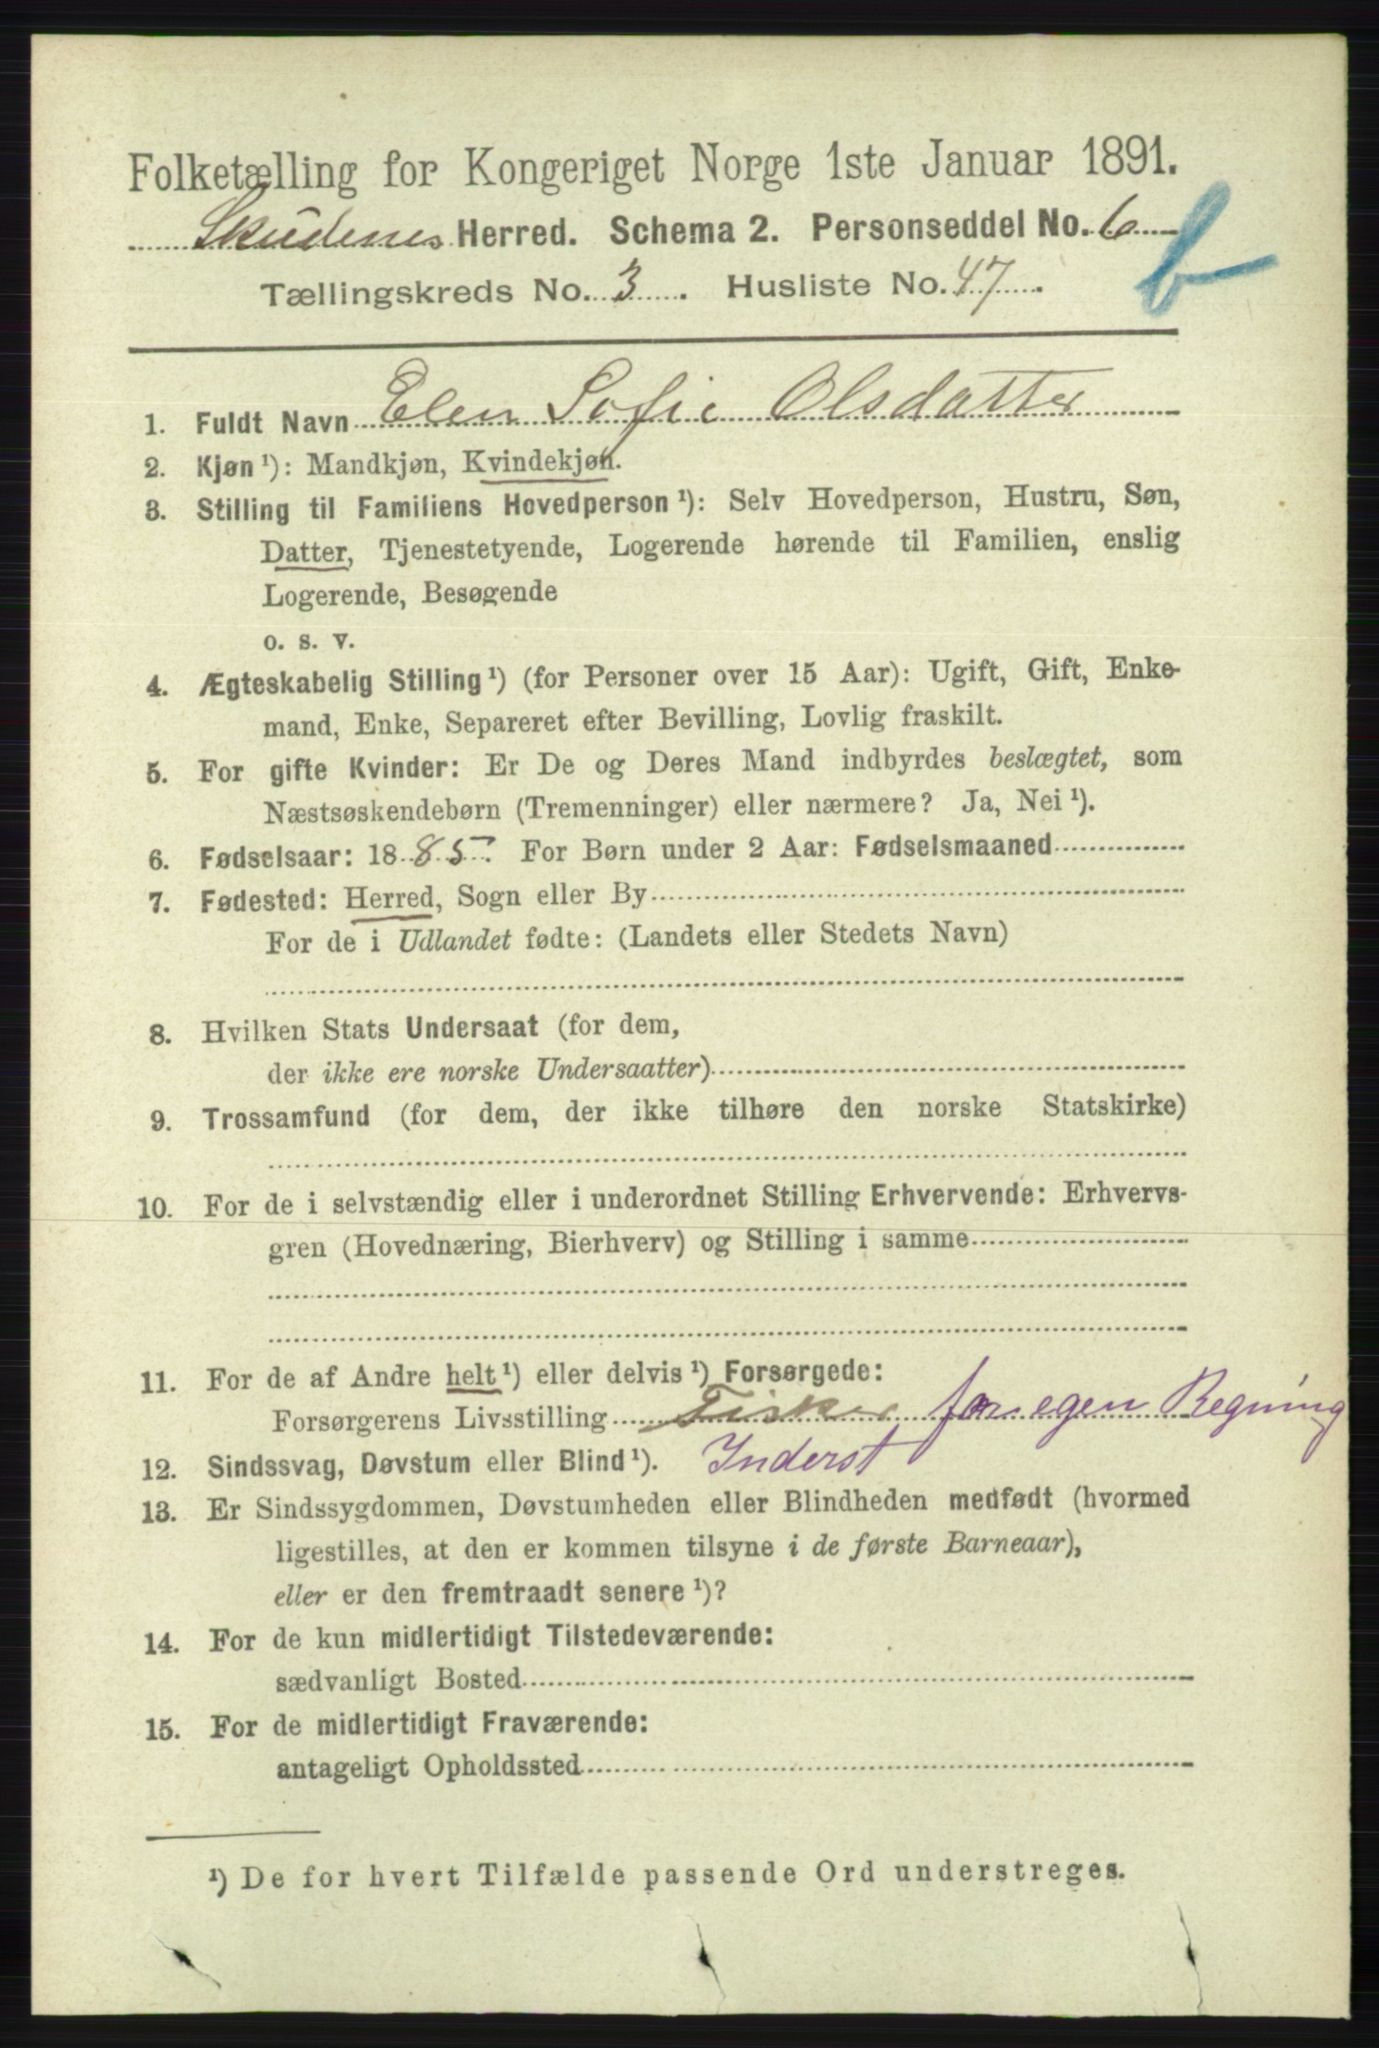 Folketælling for Kongeriget Norge 1ste Januar 1891.
Skudenes Herred. Schema 2. Personseddel No. 6
b
Tællingskreds No. 3. Husliste No. 47.
1. Fuldt Navn Elen Sofie Olsdatter
2. Kjøn¹): Mandkjøn, Kvindekjøn.
3. Stilling til Familiens Hovedperson¹): Selv Hovedperson, Hustru, Søn,
Datter, Tjenestetyende, Logerende hørende til Familien, enslig
Logerende, Besøgende
o. s. v.
4. Ægteskabelig Stilling¹) (for Personer over 15 Aar): Ugift, Gift, Enke-
mand, Enke, Separeret efter Bevilling, Lovlig fraskilt.
5. For gifte Kvinder: Er De og Deres Mand indbyrdes beslægtet, som
Næstsøskendebørn (Tremenninger) eller nærmere? Ja, Nei¹).
6. Fødselsaar: 1885. For Børn under 2 Aar: Fødselsmaaned
7. Fødested: Herred, Sogn eller By
For de i Udlandet fødte: (Landets eller Stedets Navn)
8. Hvilken Stats Undersaat (for dem,
der ikke ere norske Undersaatter)
9. Trossamfund (for dem, der ikke tilhøre den norske Statskirke)
10. For de i selvstændig eller i underordnet Stilling Erhvervende: Erhvervs-
gren (Hovednæring, Bierhverv) og Stilling i samme
11. For de af Andre helt¹) eller delvis¹) Forsørgede:
Forsørgerens Livsstilling Fisker for egen Regning
12. Sindssvag, Døvstum eller Blind¹). Inderst
13. Er Sindssygdommen, Døvstumheden eller Blindheden medfødt (hvormed
ligestilles, at den er kommen tilsyne i de første Barneaar),
eller er den fremtraadt senere¹)?
14. For de kun midlertidigt Tilstedeværende:
sædvanligt Bosted
15. For de midlertidigt Fraværende:
antageligt Opholdssted
¹) De for hvert Tilfælde passende Ord understreges.